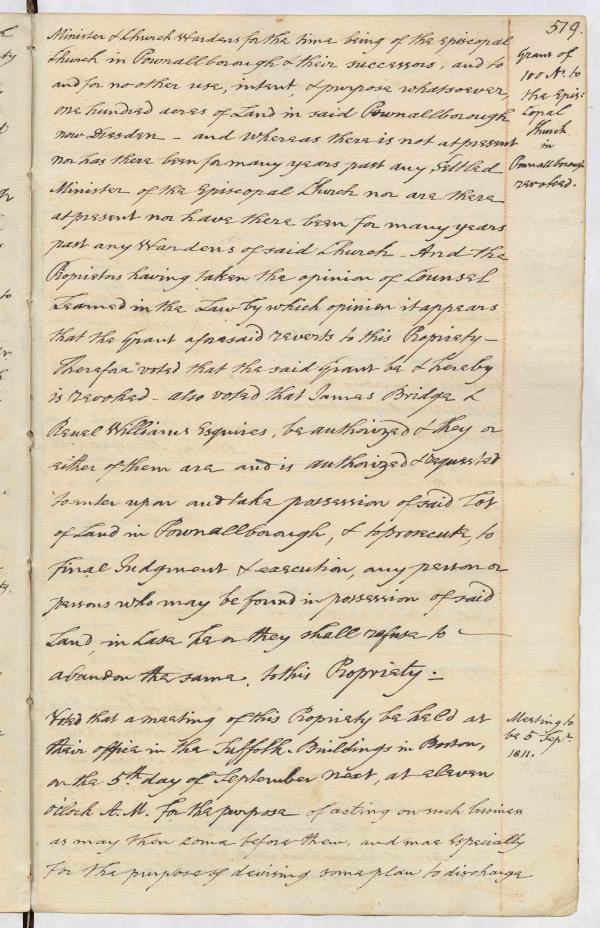 519.
Minister & Church Wardens for the time being of the Episcopal
Church in Pownallborough & their successors, and to
and for no other use, intent, & purpose whatsoever,
one hundred acres of Land in said Pownallborough
now Dresden – and whereas there is not at present
nor has there been for many years past any Settled
Minister of the Episcopal Church nor are there
at present nor have there been for many years
past any Wardens of said Church – And the
Proprietors having taken the opinion of Counsel
Learned in the Law by which opinion it appears
that the Grant aforesaid reverts to this Propriety –
Therefore voted that the said Grant be & hereby
is revoked – also voted that James Bridge &
Reuel Williams Esquires, be authorized & they or
either of them are and is authorized & requested
to enter upon and take possession of said Lot
of Land in Pownallborough, & to prosecute, to
final Judgment & execution, any person or
persons who may be found in possession of said
Land, in Case he or they shall refuse to –
abandon the same, to this Propriety:–
Voted that a meeting of this Propriety be held at
their office in the Suffolk Buildings in Boston,
on the 5th day of September next, at eleven
o'Clock A.M. for the purpose of acting on such business
as may then come before them, and more Especially
for the purpose of devising some plan to discharge
Grant of
100 As. to
the Epis:
copal
Church
in
Pownallborough
revoked.
Meeting to
be 5 Sepr.
1811.